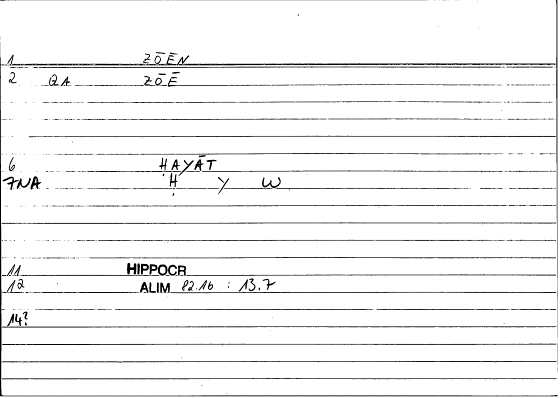 1 ZŌĒN
2 QA ZŌĒ
6 ḤAYĀT
7NA Ḥ Y W
11 HIPPOCR
12 ALIM 82.16 : 13.7
14?